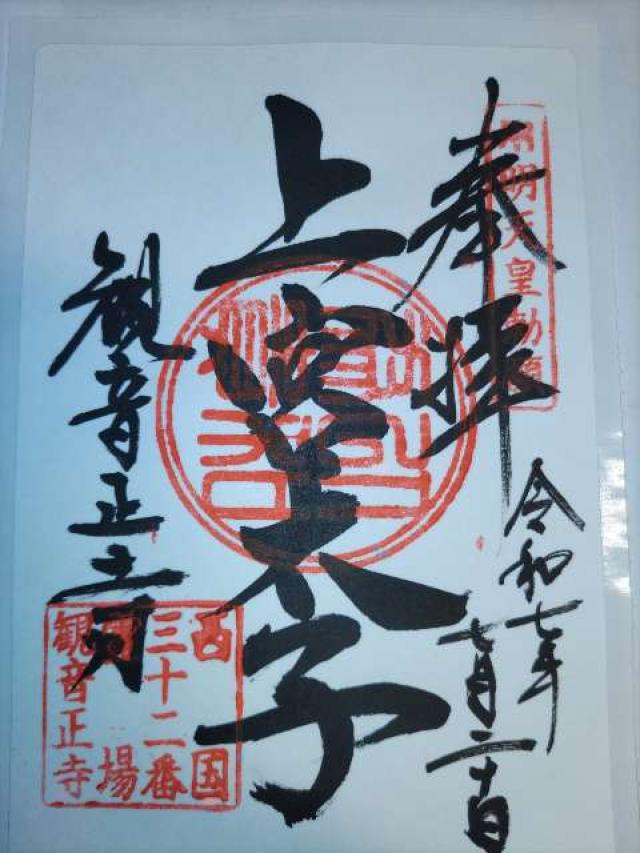 奉拝
用明天皇勅願
令和七年
七月二十日
上宮太子
観音正寺
西国
三十二番
霊場
観音正寺